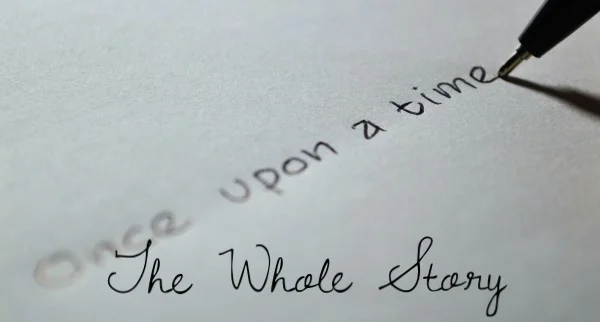 Once upon a time
The Whole Story